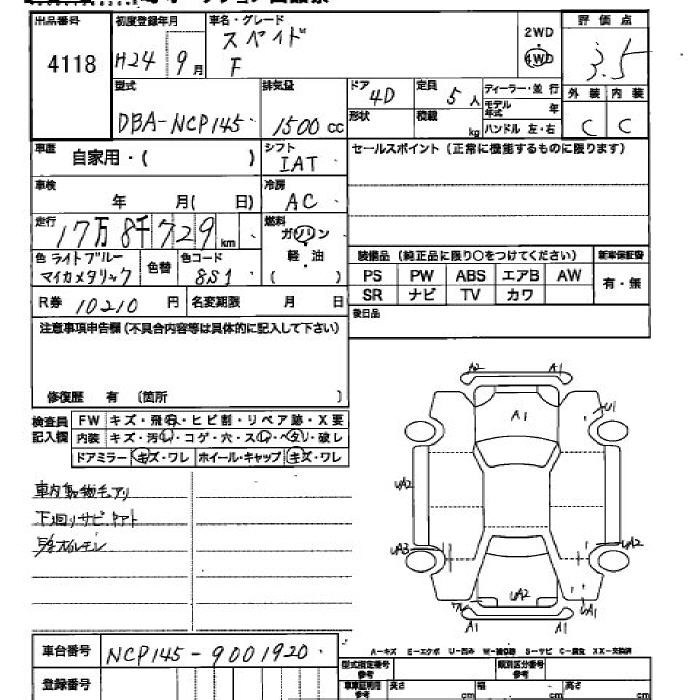 出品番号 4118
初度登録年月 H24 9月
車名・グレード スペイド F
2WD 4WD
評価点 3.5
外装 C 内装 C
型式 DBA-NCP145
排気量 1500 CC
ドア 4D 形状
定員 5人 積載 kg
ディーラー・並行
モデル年式 年
ハンドル 左・右
車歴 自家用・( )
シフト IAT
セールスポイント (正常に機能するものに限ります)
車検 年 月( 日)
冷房 AC
走行 17万8千729 km
燃料 ガソリン 軽油 ( )
色 ライトブルーマイカメタリック 色替 色コード 8S1
装備品 (純正品に限り○をつけてください) 新車保証書
PS PW ABS エアB AW 有・無
SR ナビ TV カワ
R券 10210 円 名変期限 月 日
後日品
注意事項申告欄 (不具合内容等は具体的に記入して下さい)
修復歴 有 〔箇所 〕
検査員記入欄
FW キズ・飛石・ヒビ割・リペア跡・X要
内装 キズ・汚レ・コゲ・穴・スレ・ヘタリ・破レ
ドアミラー キズ・ワレ ホイール・キャップ キズ・ワレ
A2 A1
A1
U1
UA2
UA3 UA2
UA2
UA1
A1 A1
下回りサビ
車台番号 NCP145-9001920
登録番号
A-キズ E-エクボ U-凹み W-補修跡 S-サビ C-腐食 XX-交換済
型式指定番号 参考
類別区分番号 参考
車庫証明用 参考 長さ cm 幅 cm 高さ cm